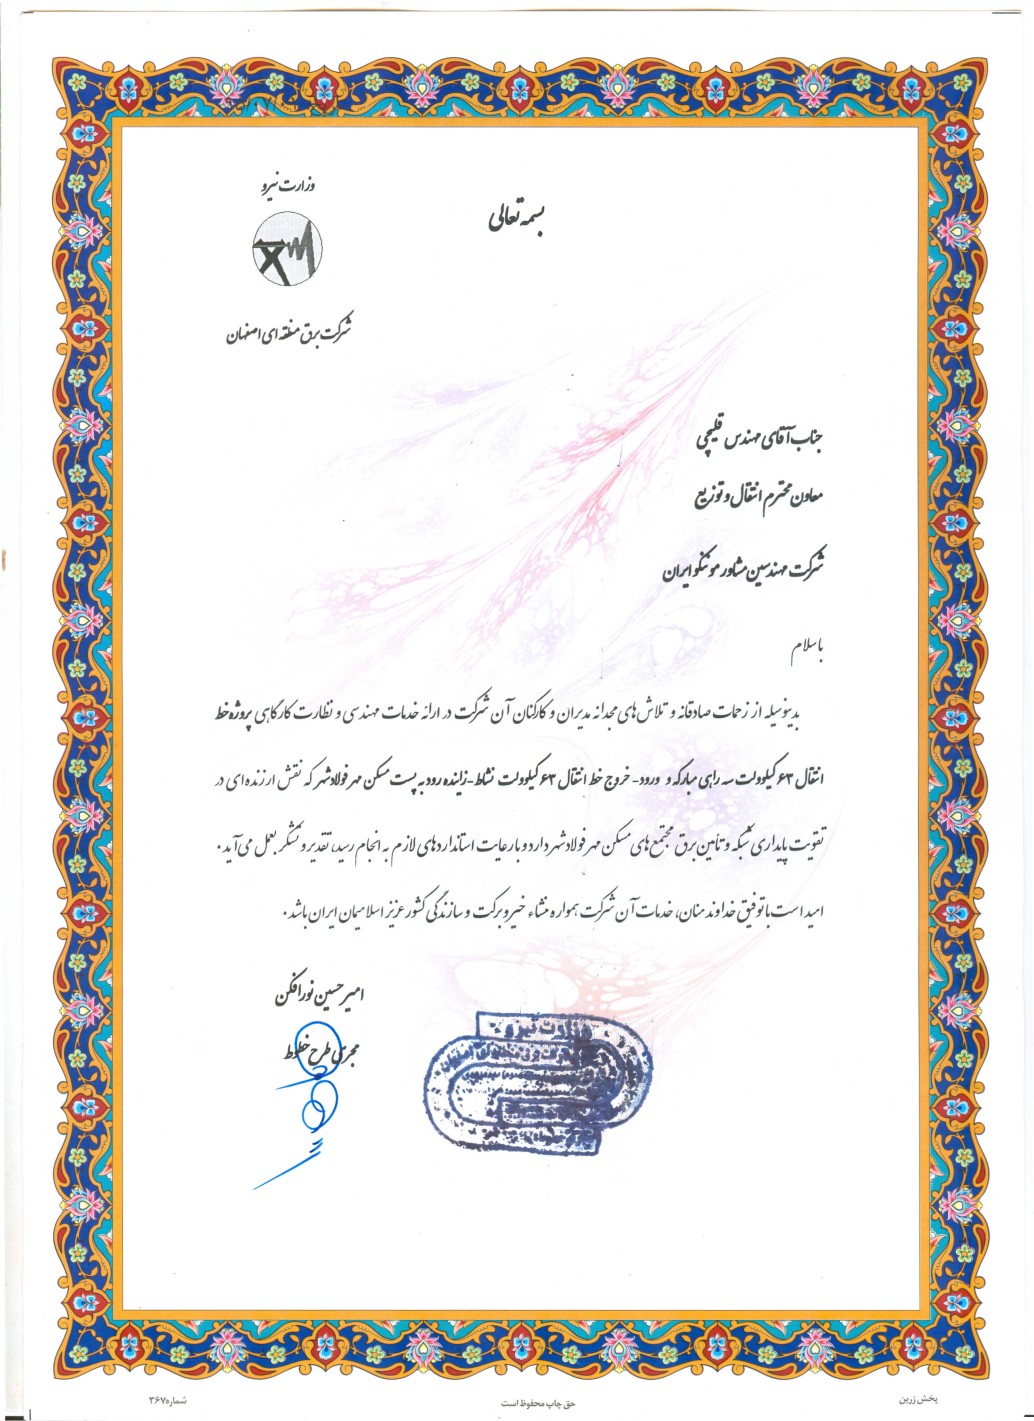 وزارت نیرو
بسمه تعالی
شرکت برق منطقه ای اصفهان
جناب آقای مهندس قلیچی
معاون محترم انتقال و توزیع
شرکت مهندسین مشاور موننکو ایران
با سلام
بدینوسیله از زحمات صادقانه و تلاش های مجدانه مدیران و کارکنان آن شرکت در ارائه خدمات مهندسی و نظارت کارگاهی پروژه خط
انتقال ۶۳ کیلوولت سه راهی مبارکه و ورود - خروج خط انتقال ۶۳ کیلوولت نشاط - زاینده رود به پست مسکن مهر فولادشهر که نقش ارزنده ای در
تقویت پایداری شبکه و تأمین برق مجتمع های مسکن مهر فولادشهر دارد و با رعایت استانداردهای لازم به انجام رسید، تقدیر و تشکر بعمل می آید.
امید است با توفیق خداوند منان، خدمات آن شرکت همواره منشاء خیر و برکت و سازندگی کشور عزیز اسلامیمان ایران باشد.
امیر حسین نورافکن
مجری طرح خطوط
وزارت نیرو
پخش زرین
حق چاپ محفوظ است
شماره ۳۶۷